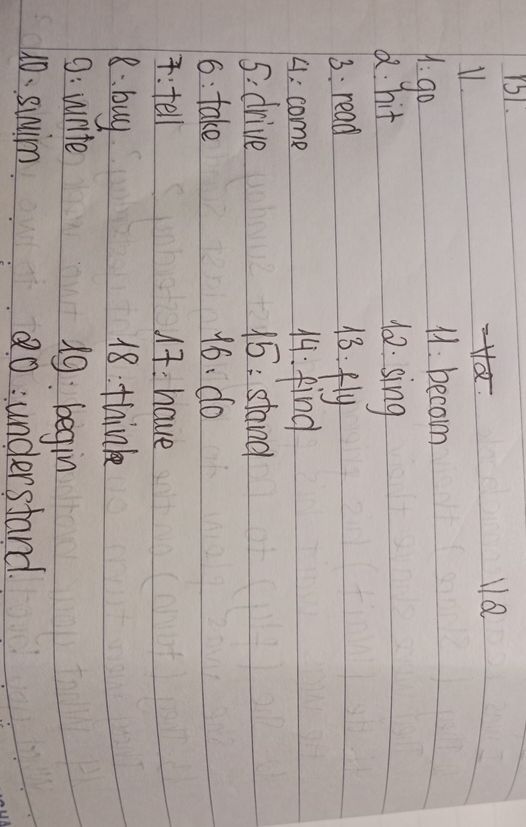 V V2
1. go 11. becom
2. hit 12. sing
3. read 13. fly
4. come 14. find
5. drive 15. stand
6. take 16. do
7. tell 17. have
8. buy 18. think
9. write 19. begin
10. swim 20. understand.